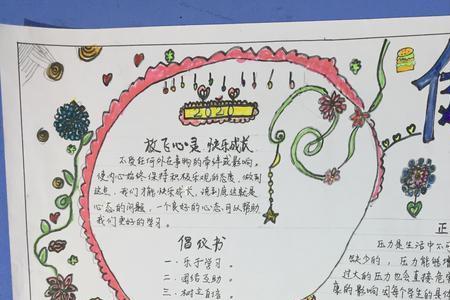 2020
放飞心灵 快乐成长
不受任何外在事物的牵绊或影响。
使内心始终保持积极乐观的态度。做到
这点，我们才能快乐成长，说到底这就是
心态的问题，一个良好的心态可以帮助
我们更好的学习。
倡仪书
一、乐于学习。
二、团结互助。
三、树立自信
正
压力是生活中不可
缺少的，压力能够增
过大的压力也会直接危害
康的影响因每个学生的具体